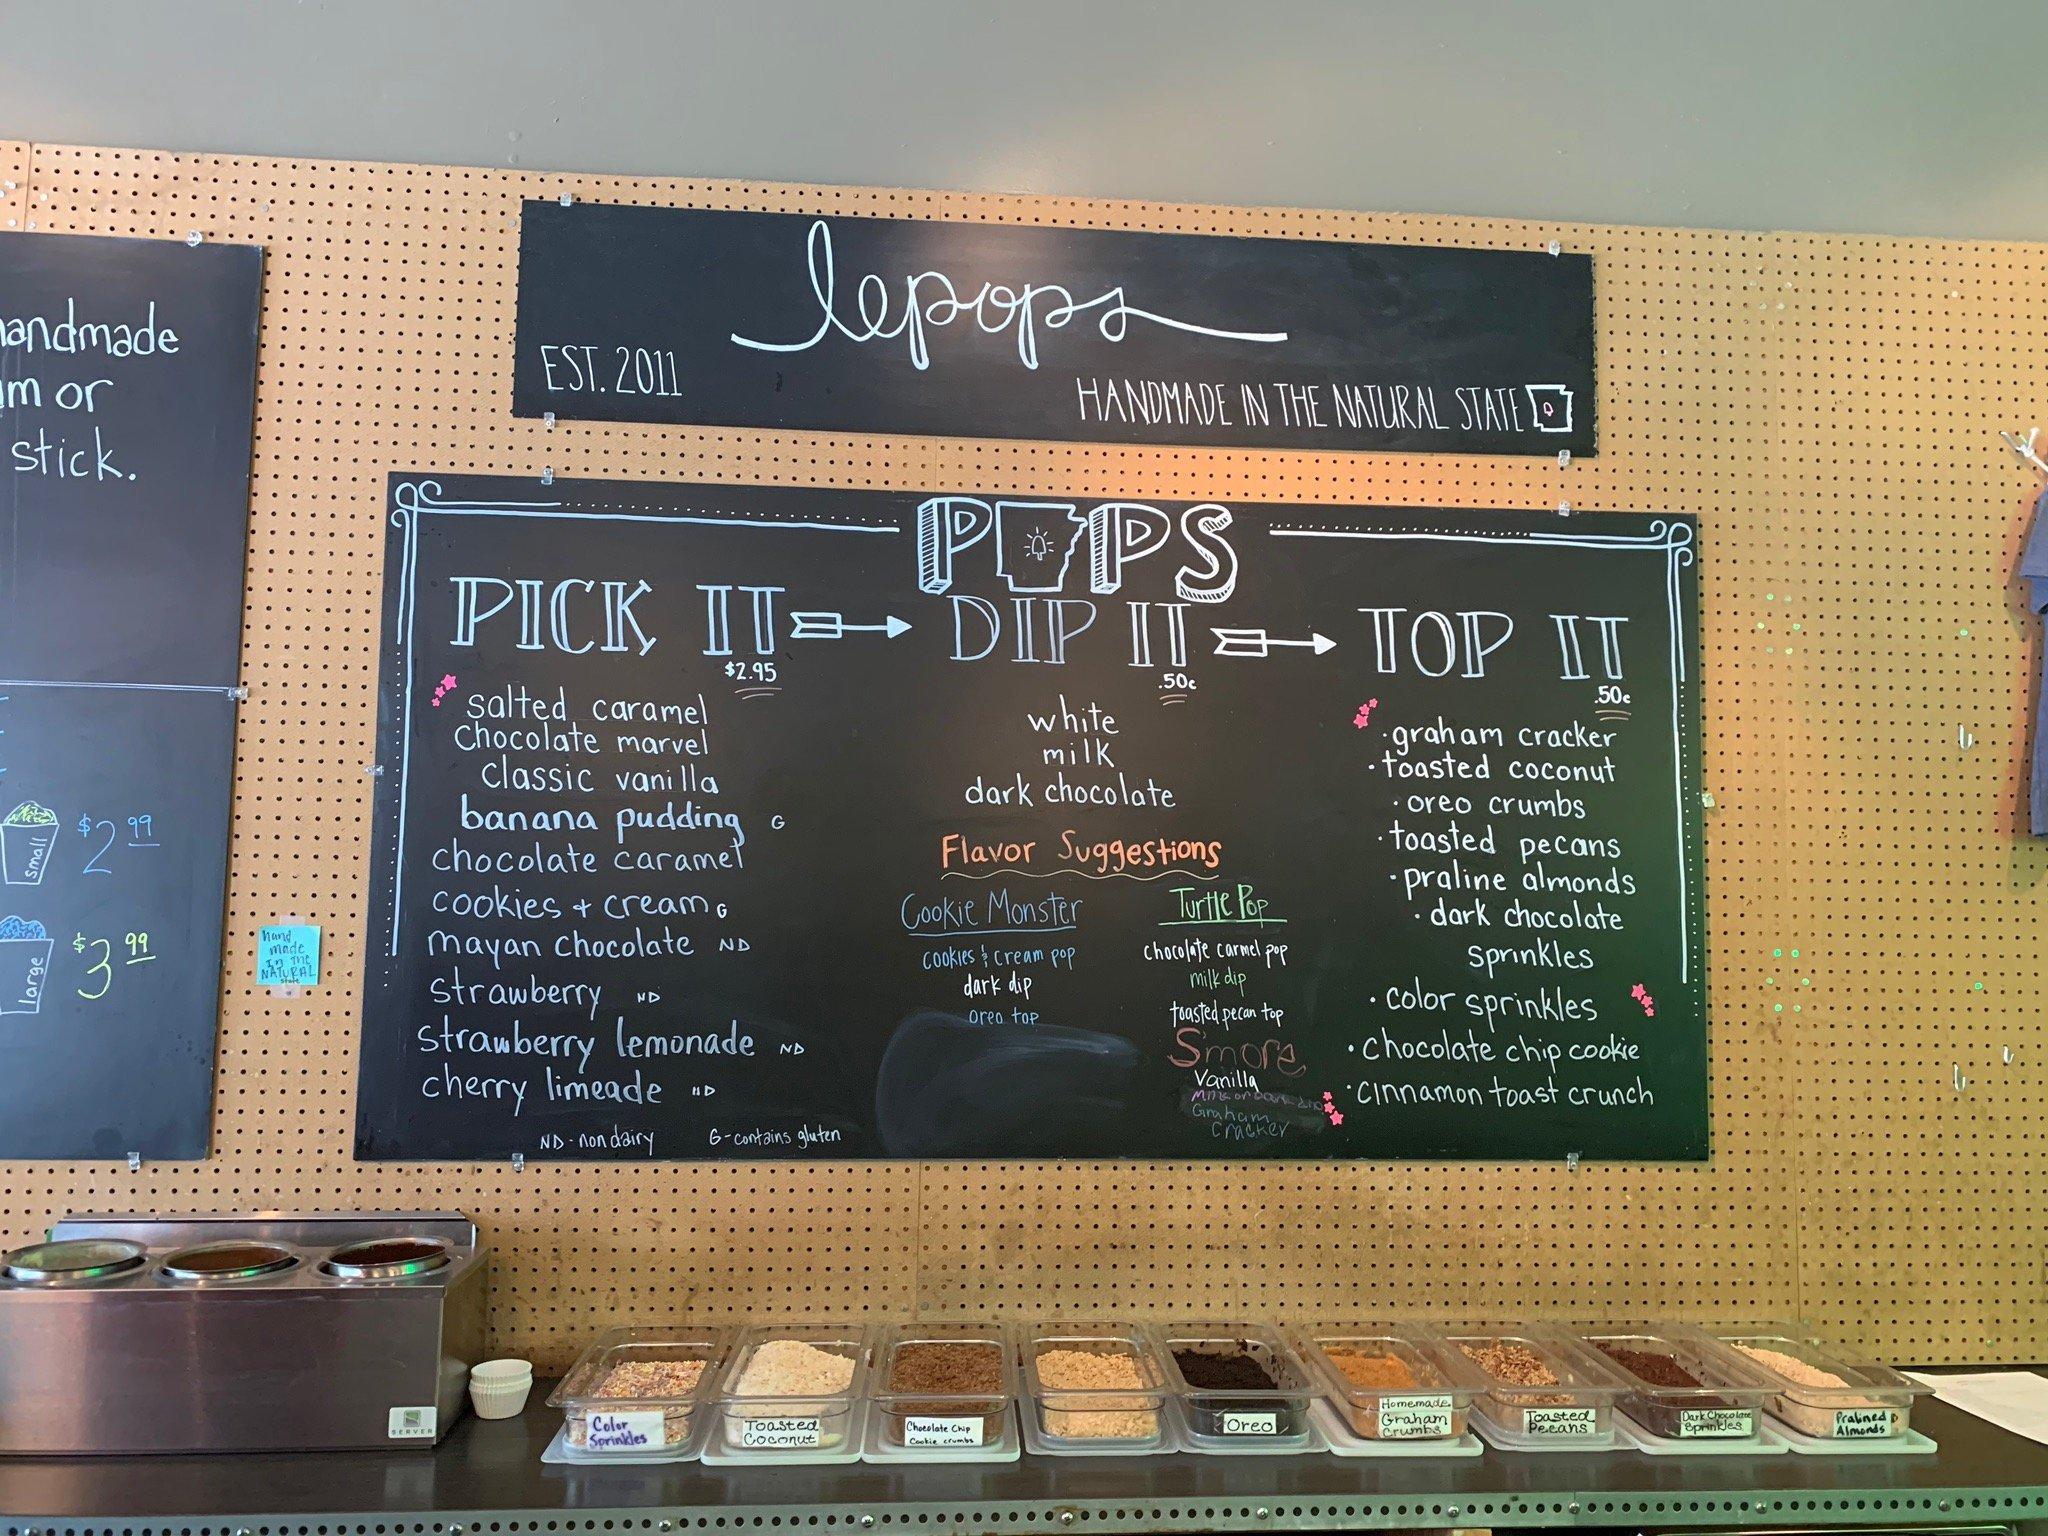 lepops
EST. 2011
HANDMADE IN THE NATURAL STATE
andmade
or
stick.
small
$2 99
large
$3 99
hand
made
In the
NATURAL
state
POPS
PICK IT
$2.95
salted caramel
Chocolate marvel
classic vanilla
banana pudding G
chocolate caramel
cookies + cream G
mayan chocolate ND
strawberry ND
strawberry lemonade ND
cherry limeade ND
ND - non dairy G - contains gluten
DIP IT
.50c
white
milk
dark chocolate
Flavor Suggestions
Cookie Monster
cookies & cream pop
dark dip
oreo top
Turtle Pop
chocolate carmel pop
milk dip
toasted pecan top
S'more
Vanilla
Milk or dark dip
Graham
Cracker
TOP IT
.50c
· graham cracker
· toasted coconut
· oreo crumbs
· toasted pecans
· praline almonds
· dark chocolate
sprinkles
· color sprinkles
· chocolate chip cookie
· cinnamon toast crunch
SERVER
Color
Sprinkles
Toasted
Coconut
Chocolate Chip
Cookie crumbs
Oreo
Homemade
Graham
Crumbs
Toasted
Pecans
Dark Chocolate
Sprinkles
Pralined
Almonds